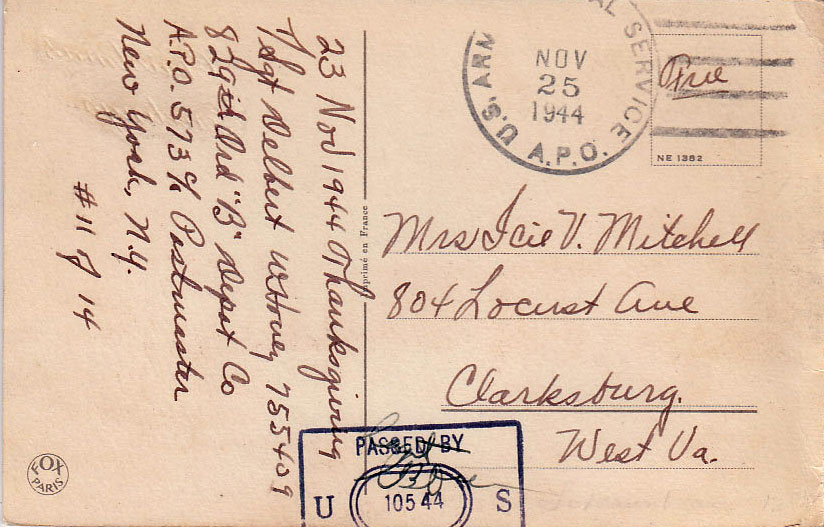 23 Nov 1944 Thanksgiving
T/Sgt Delbert W Hovey 755409
829th Ord "B" Depot Co
A.P.O. 573 c/o Postmaster
New York, N.Y.
#11 of 14
U.S. ARM AL SERVICE
NOV
25
1944
A.P.O.
Free
NE 1382
Imprimé en France
Mrs Icie V. Mitchell
804 Locust Ave
Clarksburg.
West Va.
PASSED BY
U 10544 S
FOX
PARIS